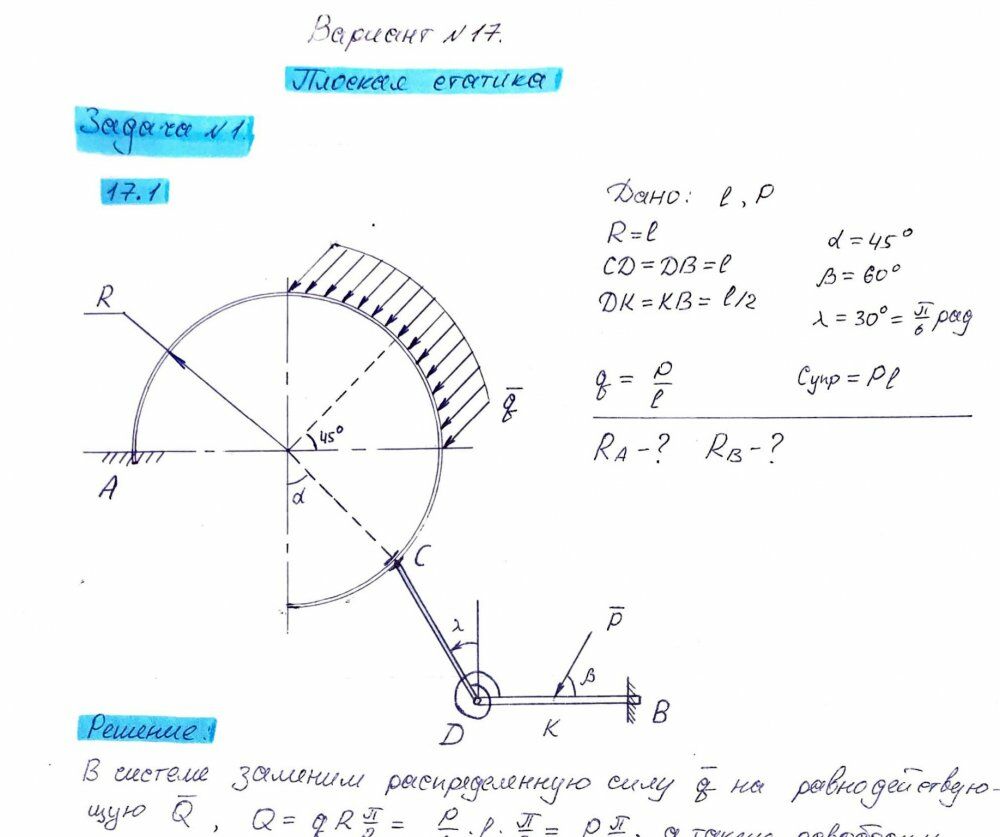 Вариант №17.
Плоская статика
Задача №1.
17.1
Дано: l, P
R=l
α=45°
CD=DB=l
β=60°
DK=KB=l/2
λ=30°=π/6 рад
q = P/l
Cупр=Pl
RA-? RB-?
R
q̅
45°
A
α
C
λ
P̅
β
D
K
B
Решение:
В системе заменим распределенную силу q̅ на равнодействую-
щую Q̅, Q = qR π/2 = P/l · l · π/2 = P π/2, а также